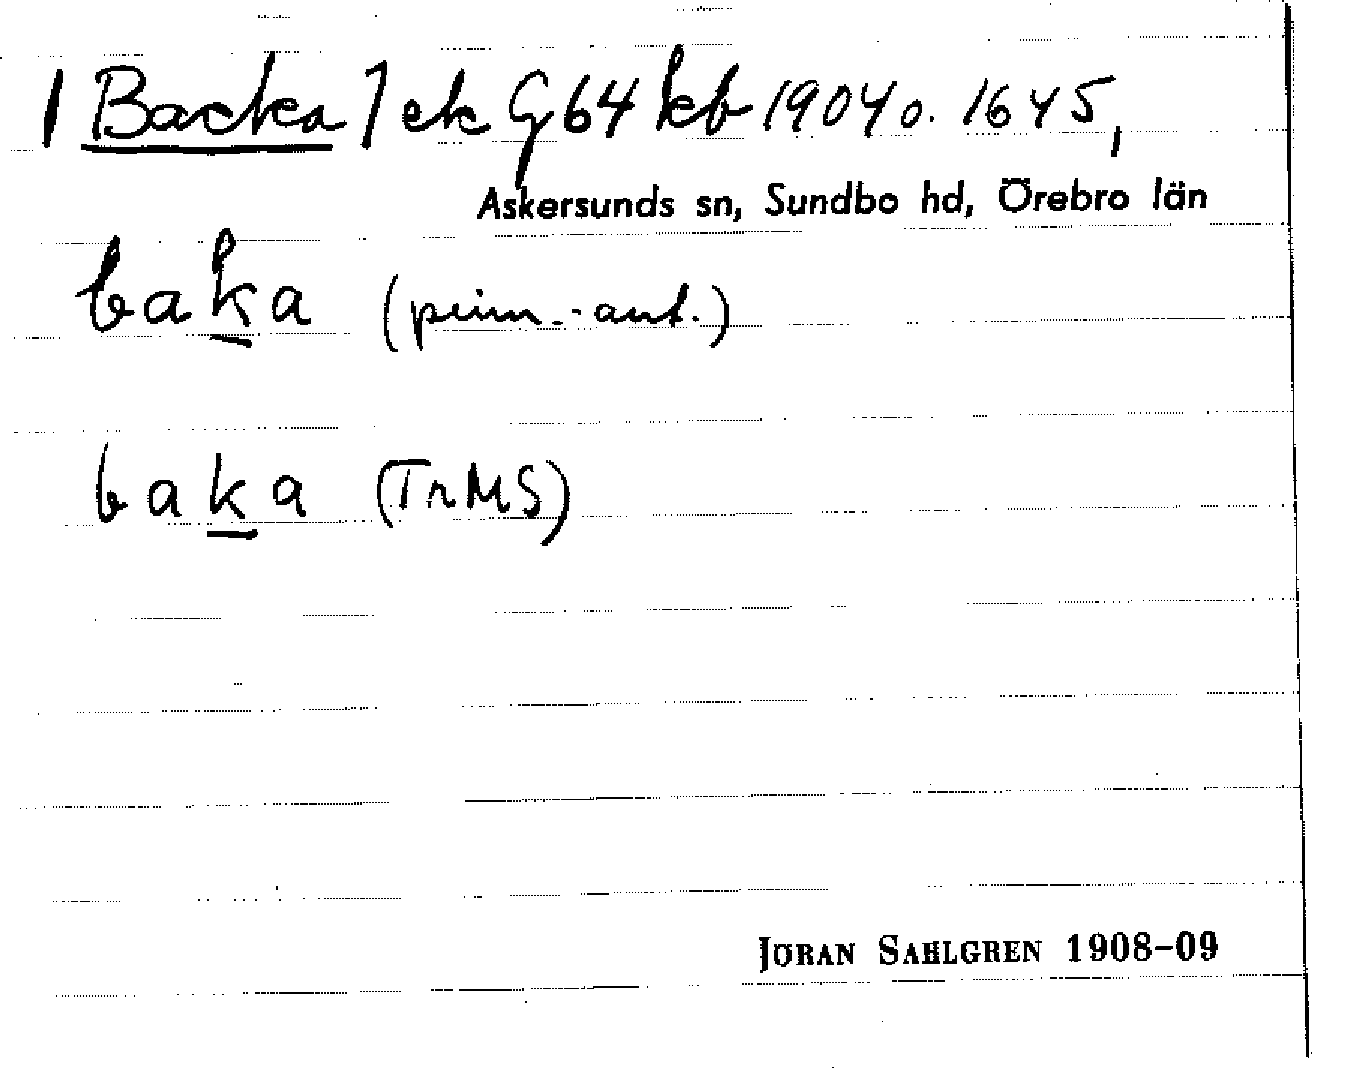 1 Backa 1 ek G 64 kb 1904 o. 1645,
Askersunds sn, Sundbo hd, Örebro län
baka (prim.-ant.)
baka (TrMS)
JÖRAN SAHLGREN 1908-09